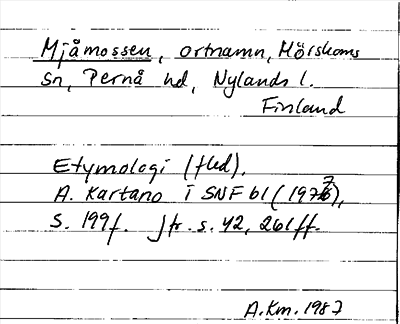 Mjåmossen, ortnamn, Mörskoms
sn, Pernå hd, Nylands l.
Finland
Etymologi (fled).
A. Kartano i SNF 61 (1977),
s. 199f. Jfr. s. 42, 261ff.
A.Km. 1987